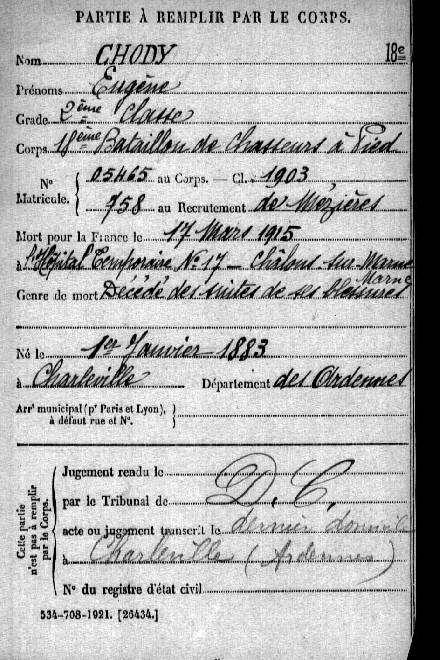 PARTIE À REMPLIR PAR LE CORPS.
Nom CHODY 18e
Prénoms Eugène
Grade 2ème Classe
Corps 18ème Bataillon de Chasseurs à Pied
N° Matricule. { 05465 au Corps. — Cl. 1903
758 au Recrutement de Mézières
Mort pour la France le 17 Mars 1915
à l'Hôpital Temporaire N° 17 — Châlons sur Marne
Marne
Genre de mort Décédé des suites de ses blessures
Né le 1er Janvier 1883
à Charleville Département des Ardennes
Arr' municipal (p' Paris et Lyon),
à défaut rue et N°. }
Cette partie n'est pas à remplir par le Corps.
Jugement rendu le
par le Tribunal de D. C.
acte ou jugement transcrit le dernier domicile
à Charleville (Ardennes)
N° du registre d'état civil
534-708-1921. [26434.]